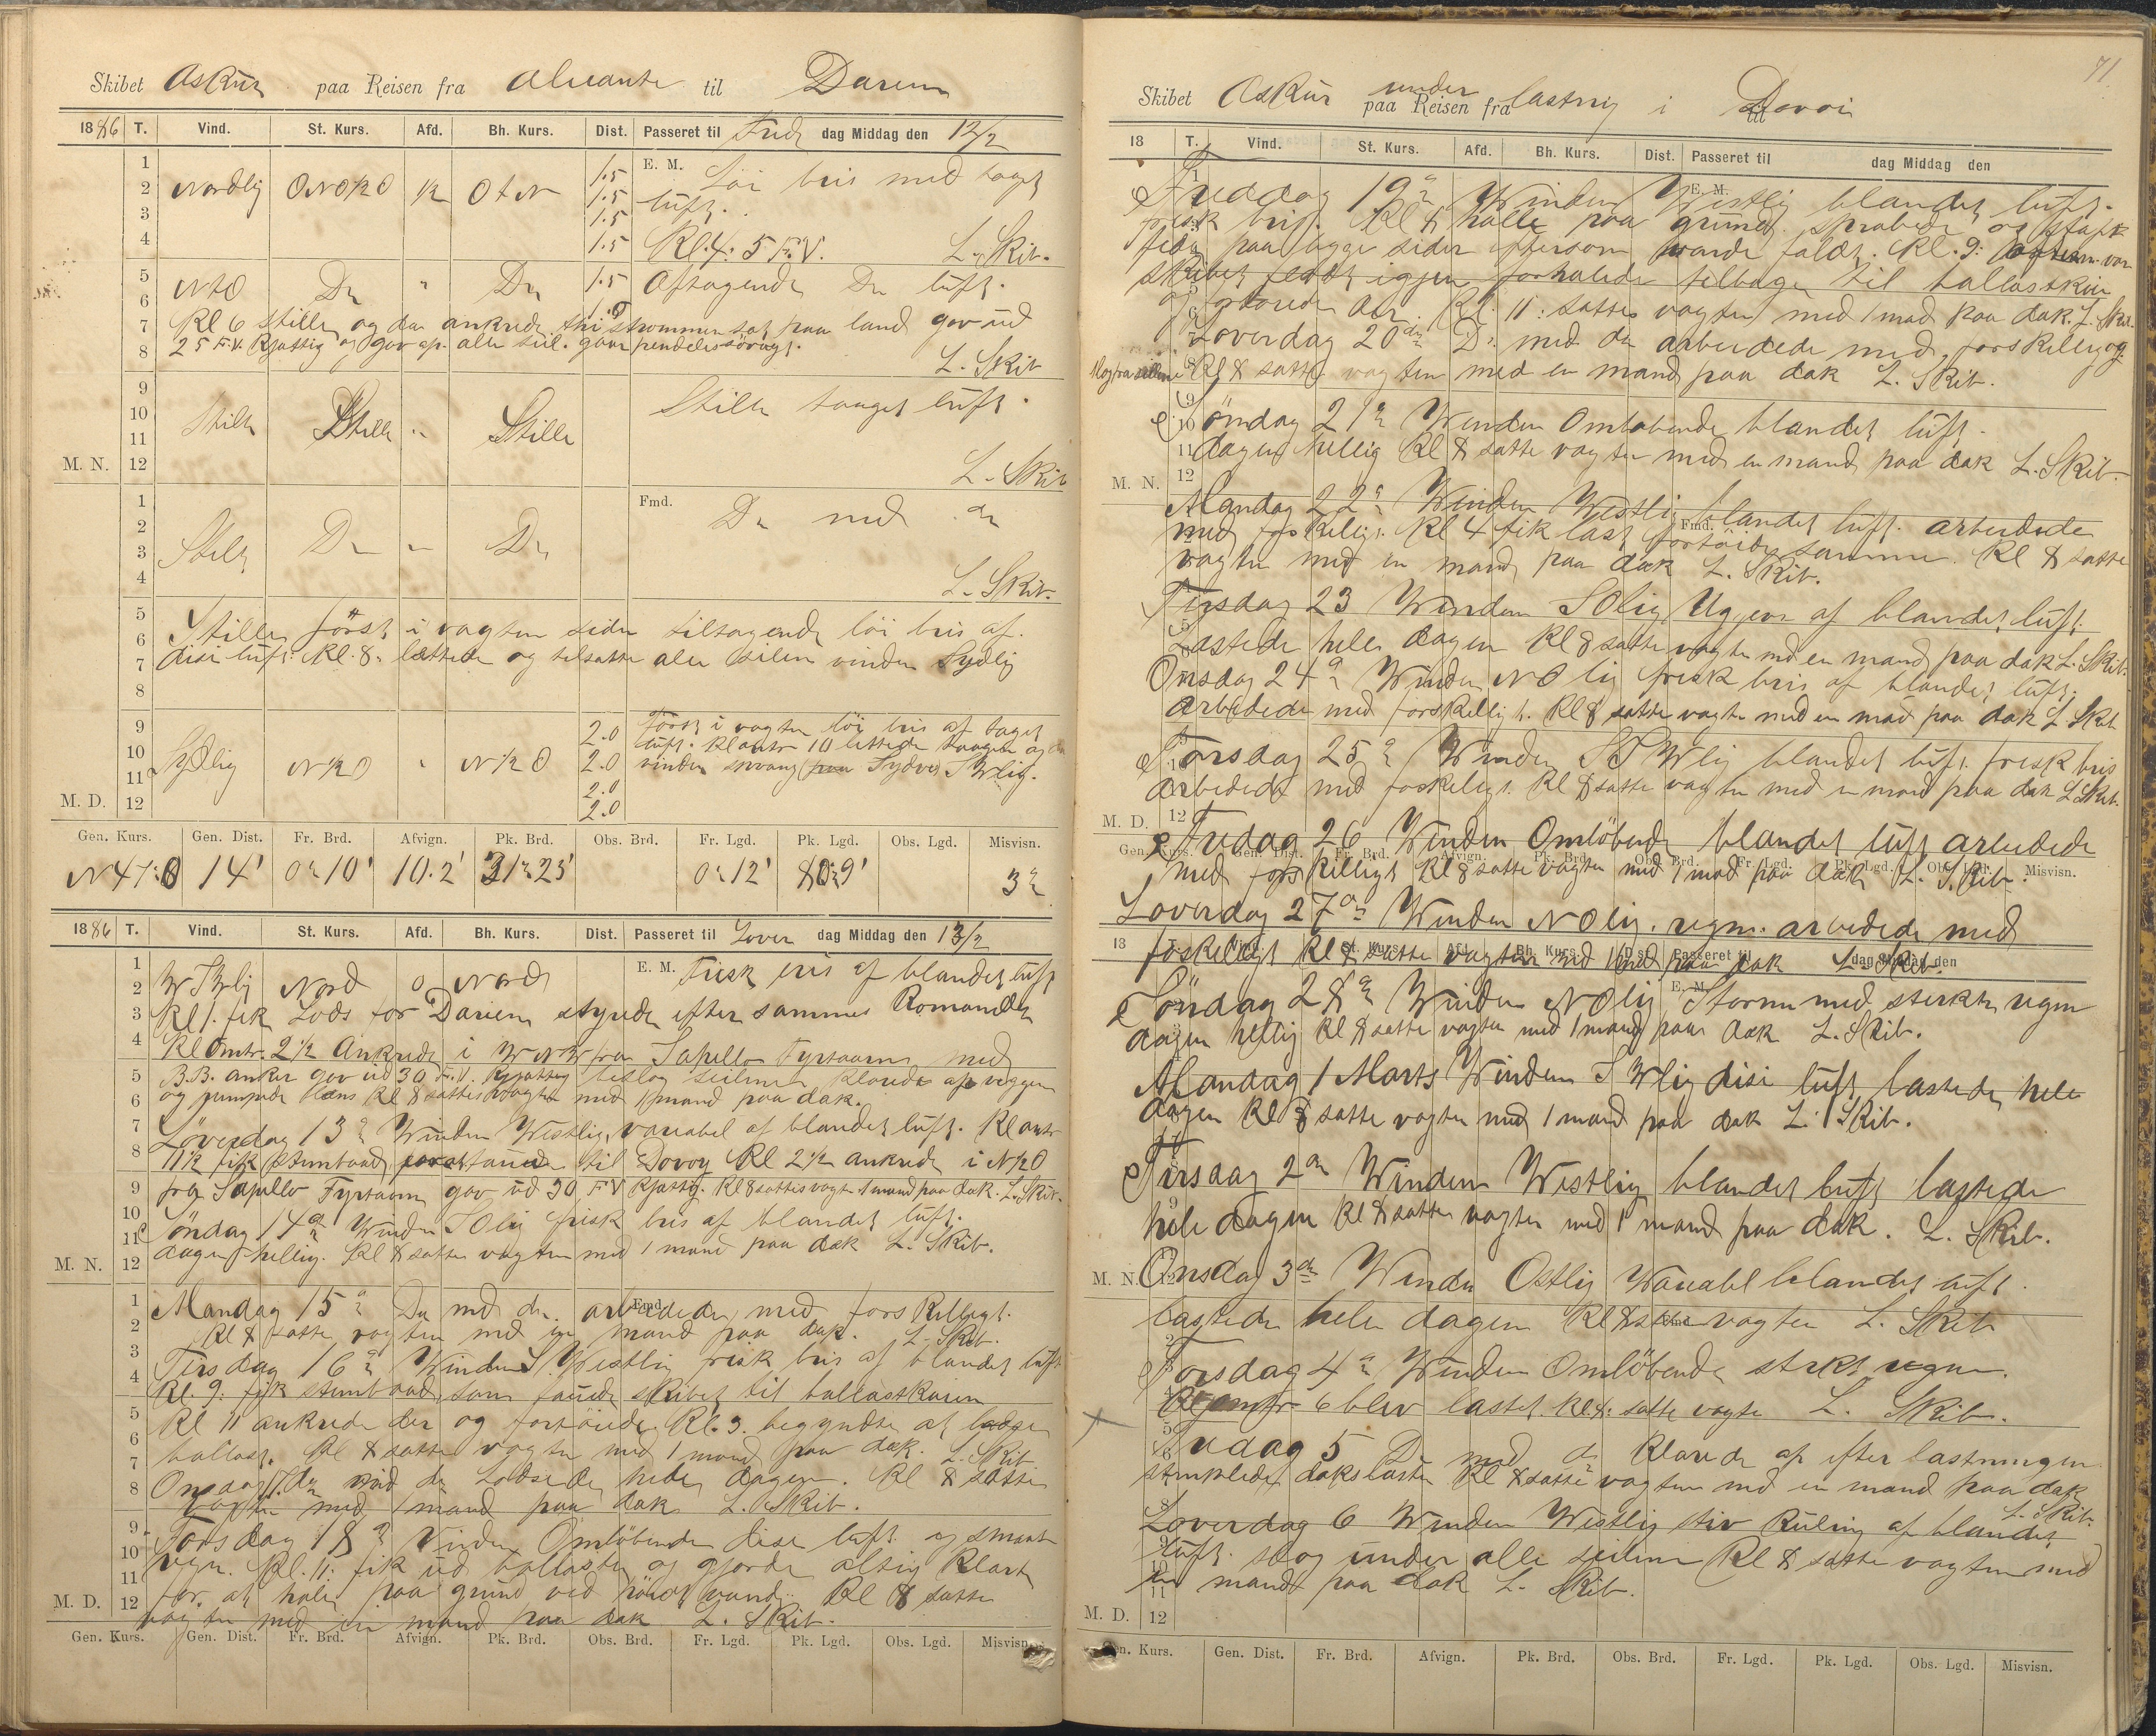 Skibet Askur paa Reisen fra Alicante til Darien
1886 T. Vind. St. Kurs. Afd. Bh. Kurs. Dist. Passeret til Fre dag Middag den 12/2
1 1.5 E. M. Löi bris med taaget
2 Nordlig ONO½O ½ OtN 1.5 luft.
3 1.5
4 1.5 Kl. 4: 5 F.V. L. Skib.
5 NtO Do " Do 1.5 Aftagende Do luft.
6
7 Kl 6 stille og da ankrede thi strommen sat paa land gov ud
8 25 F.V. Kjætting og gov ap. alle seil. L. Skib
9 Stille taaget luft.
10 Stille Stille " Stille
11
M. N. 12 L. Skib
1 Fmd. Do med do
2
3 Stille Do " Do
4 L. Skib.
5 Stille först i vagten siden tiltagende löi bris af
6 disi luft. Kl. 8. lættede og tilsatte alle silen vinden Sydlig
7
8
9 2.0 Först i vagten löi bris af taaget
10 luft. Kl omtr 10 lettede taagen og da
11 Sydlig N½O " N½O 2.0 vinden sprang paa Sydvest SWlig.
2.0
M. D. 12 2.0
Gen. Kurs. Gen. Dist. Fr. Brd. Afvign. Pk. Brd. Obs. Brd. Fr. Lgd. Pk. Lgd. Obs. Lgd. Misvisn.
N47:O 14' 0° 10' 10.2' 31° 25' 0° 12' 80° 9' 3°
1886 T. Vind. St. Kurs. Afd. Bh. Kurs. Dist. Passeret til Löver dag Middag den 13/2
1 E. M. Frisk bris af blandet luft
2 WSWlig Nord 0 Nord
3 Kl 1. fik Lods for Darien styrede efter sammes Komando
4 Kl omtr. 2½ Ankrede i WNW fra Sapello Fyrtaarn med
5 B.B. anker gov ud 30 F.V. Kjætting beslog seilene klarede ap veggen
6 og pumpede læns Kl 8 sattes vagten med 1 mand paa dæk.
7 Löverdag 13de Winden Westlig, variabel af blandet luft. Kl omtr
8 11½ fik stimbaad til Dovoy Kl 2½ ankrede i N½O
9 fra Sapello Fyrtaarn gov ud 30 F.V Kjætting. Kl 8 sattes vagt 1 mand paa dæk. L. Skib.
10 Söndag 14de Winden SOlig frisk bris af blandet luft.
11 dagen hellig. Kl 8 satte vagten med 1 mand paa dæk L. Skib.
M. N. 12
1 Fmd. Mandag 15de Do med do. arbeidede med forskelligt.
2 Kl 8 satte vagten med en mand paa dæk. L. Skib.
3 Tirsdag 16de Winden S. Westlig frisk bris af blandet luft
4 Kl. 9: fik stimbaad som tauede skibet til ballastkaien
5 Kl 11 ankrede der og fortöiede. Kl. 3. begyndte at losse
6 ballast. Kl 8 satte vagten med 1 mand paa dæk. L. Skib
7 Onsdag 17de med do Lodsede hele dagen. Kl 8 satte
8 vagten med 1 mand paa dæk L. Skib.
9 Torsdag 18de Vinden Omlöbende disi luft og smaat
10 regn. Kl. 11: fik ud ballasten og gjorde alting klart
11 for at hale paa grund ved höit vand. Kl 8 satte
M. D. 12 vagten med en mand paa dæk L. Skib.
Gen. Kurs. Gen. Dist. Fr. Brd. Afvign. Pk. Brd. Obs. Brd. Fr. Lgd. Pk. Lgd. Obs. Lgd. Misvisn.
71
Skibet Askur under paa Reisen fra lastnig i til Dovoi
18 T. Vind. St. Kurs. Afd. Bh. Kurs. Dist. Passeret til dag Middag den
Fredag 19de Winden Westlig blandet luft.
frisk bris. Kl 8 halte paa grund skrabede og
paa begge sider eftersom vande faldt. Kl. 9:
skibet flödt igjen forhalede tilbage til ballastkaien
og der. Kl. 11: sattes vagten med 1 mad paa dæk. L. Skib.
Loverdag 20de Do med do arbeidede med forskellig
Kl 8 satte vagten med en mand paa dæk L. Skib.
Söndag 21de Winden Omlobende blandet luft.
dagen hellig Kl 8 satte vagten med en mand paa dæk L. Skib.
M. N. 12
Mandag 22de Winden Westlig blandet luft. arbeidede
med forskelligt. Kl 4 fik last fortöide samme. Kl 8 satte
vagten med en mand paa dæk L. Skib.
Tirsdag 23 Winden SOlig af blandet luft.
Lastede hele dagen Kl 8 satte vagten med en mand paa dæk L. Skib.
Onsdag 24de Winden NOlig frisk bris af blandet luft.
Arbeidede med forskelligt. Kl 8 satte vagten med en mad paa dæk L Skib
Torsdag 25de Winden SSWlig blandet luft frisk bris
Arbeidede med foskeligt. Kl 8 satte vagten med en mand paa dæk L Skib.
M. D. 12
Fredag 26 Winden Omlöbende blandet luft arbeidede
Gen. Kurs. Gen. Dist. Fr. Brd. Afvign. Pk. Brd. Obs. Brd. Fr. Lgd. Pk. Lgd. Obs. Lgd. Misvisn.
med forskelligt Kl 8 satte vagten med 1 mad paa dæk L. Skib.
Loverdag 27de Winden NOlig. regn. arbeidede med
18 T. Vind. St. Kurs. Afd. Bh. Kurs. Dist. Passeret til dag Middag den
foskelligt Kl 8 satte vagten med 1 mad paa dæk L. Skib.
Söndag 28de Winden NOlig Storm med sterkt regn
dagen hellig Kl 8 satte vagten med 1 mand paa dæk L. Skib.
Mandag 1 Marts Winden SWlig disi luft lastede hele
dagen Kl 8 satte vagten med 1 mand paa dæk L. Skib.
Tirsdag 2de Winden Westlig blandet luft lastede
hele dagen Kl 8 satte vagten med 1 mand paa dæk. L. Skib.
M. N. 12 Onsdag 3de Winden Ostlig Variabl blandet luft.
lastede hele dagen Kl 8 satte vagten L. Skib
Torsdag 4de Winden Omlöbende sterkt regn.
Kl omtr 6 blev lastet. Kl 8: satte vagten L. Skib.
Fredag 5 Do med do Klarede ap efter lastningen
stimplede dækslasten Kl 8 satte vagten med en mand paa dæk
L. Skib.
Loverdag 6 Winden Westlig stiv Kuling af blandet
luft. slog under alle seilene Kl 8 satte vagten med
en mand paa dæk L. Skib.
M. D. 12
Gen. Kurs. Gen. Dist. Fr. Brd. Afvign. Pk. Brd. Obs. Brd. Fr. Lgd. Pk. Lgd. Obs. Lgd. Misvisn.